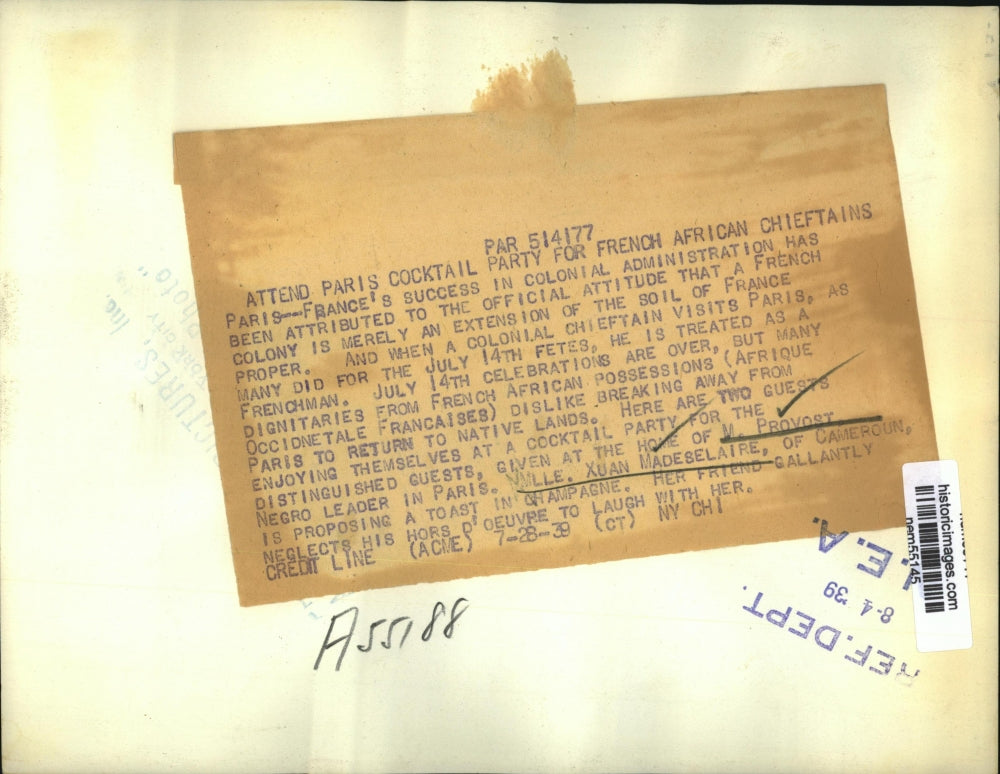 PAR 514177
ATTEND PARIS COCKTAIL PARTY FOR FRENCH AFRICAN CHIEFTAINS
PARIS--FRANCE'S SUCCESS IN COLONIAL ADMINISTRATION HAS
BEEN ATTRIBUTED TO THE OFFICIAL ATTITUDE THAT A FRENCH
COLONY IS MERELY AN EXTENSION OF THE SOIL OF FRANCE
PROPER. AND WHEN A COLONIAL CHIEFTAIN VISITS PARIS, AS
MANY DID FOR THE JULY 14TH FETES, HE IS TREATED AS A
FRENCHMAN. JULY 14TH CELEBRATIONS ARE OVER, BUT MANY
DIGNITARIES FROM FRENCH AFRICAN POSSESSIONS (AFRIQUE
OCCIDNETALE FRANCAISES) DISLIKE BREAKING AWAY FROM
PARIS TO RETURN TO NATIVE LANDS. HERE ARE TWO GUESTS
ENJOYING THEMSELVES AT A COCKTAIL PARTY FOR THE
DISTINGUISHED GUESTS, GIVEN AT THE HOME OF M. PROVOST,
NEGRO LEADER IN PARIS. MLLE. XUAN MADESELAIRE, OF CAMEROUN,
IS PROPOSING A TOAST IN CHAMPAGNE. HER FRIEND GALLANTLY
NEGLECTS HIS HORS D'OEUVRE TO LAUGH WITH HER.
CREDIT LINE (ACME) 7-28-39 (CT) NY CHI
A55188
REF. DEPT.
8-1 '39
E. A.
historicimages.com
nem55145
PICTURES, Inc.
YORK CITY
Photo"